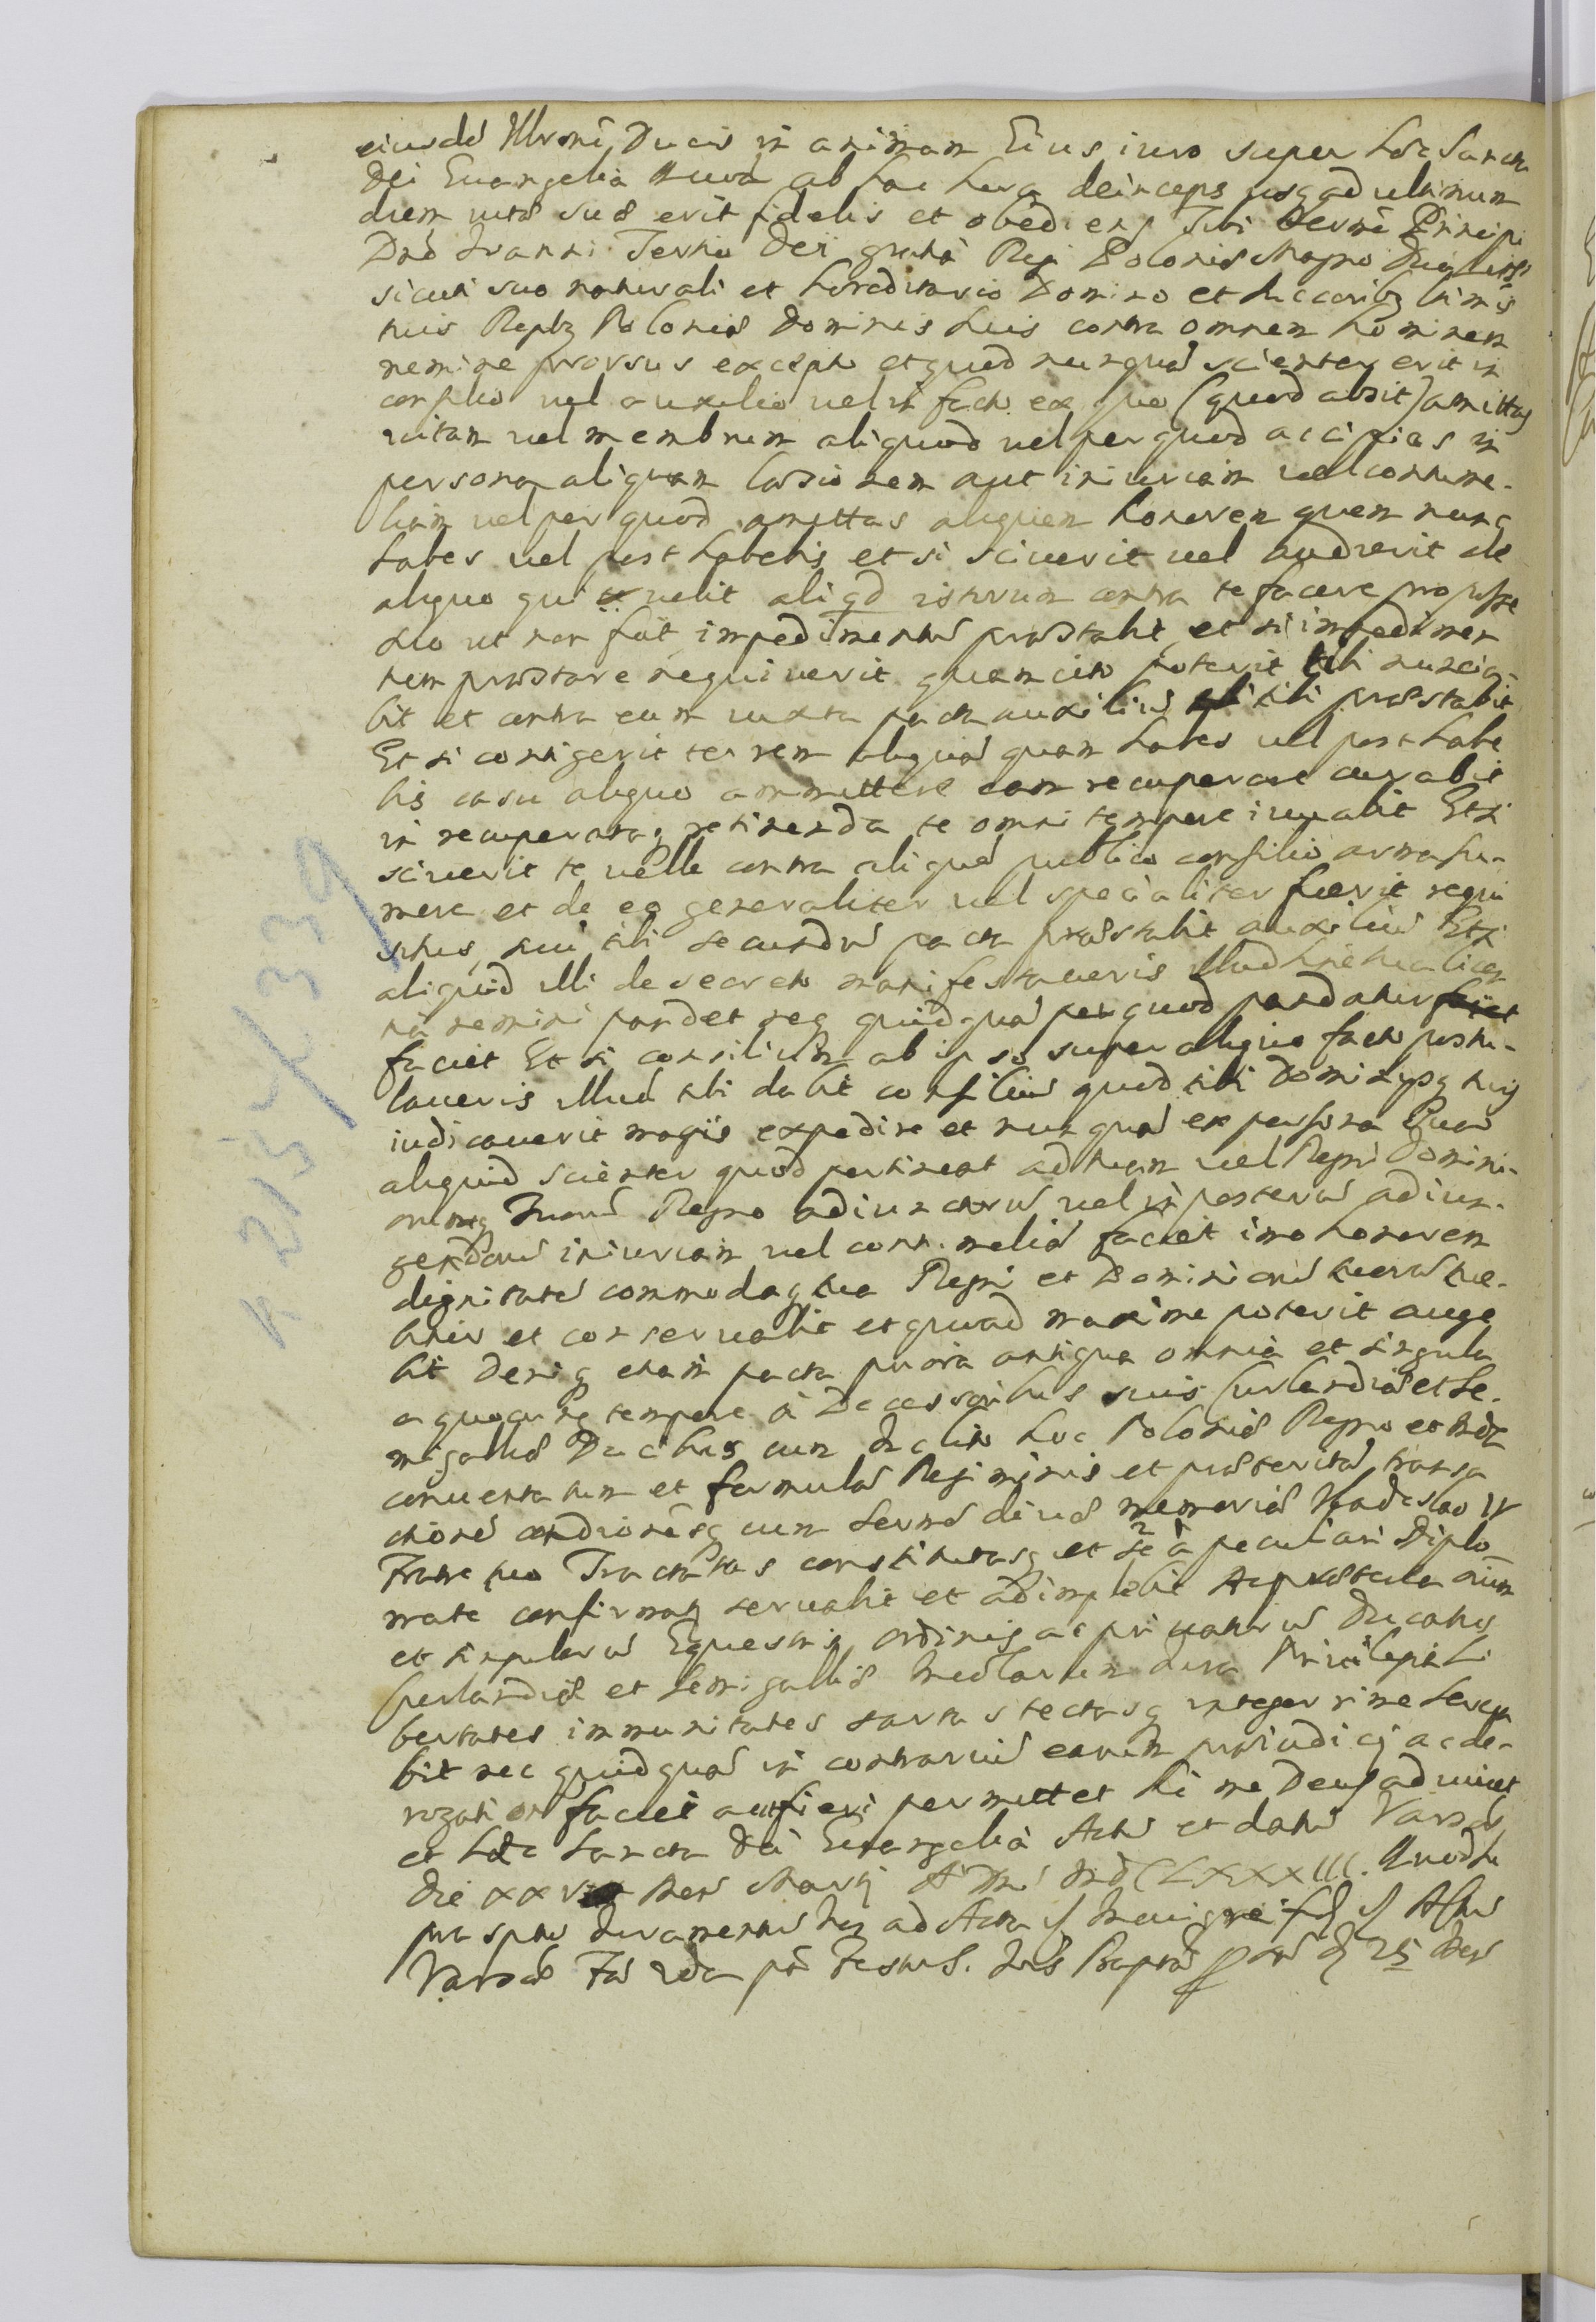 eiusdē Illrmi Ducis in animam Eius iuro super hæc Sancta
Dei Euangelia quod ab hac hora deinceps usq ad ultimum
diem uitæ suæ erit fidelis et obediens Tibi Sermo Principi
Dno Ioanni Tertio Dei gratia Regi Poloniæ Magno Duci
sicuti suo naturali et hæreditario Domino et Succoribz
tuis Regibz Poloniæ Dominis suis contra omnem hominem
nemine prorsus excepto et quod nunquā scienter erit in
consilio uel auxilio uel in facto ex quo (quod absit) amittas
uitam uel membrum aliquod uel per quod accipias in
persona aliquam læsionem aut iniuriam uel contume-
liam uel per quod amittas aliquem honorem quem nunc
habes uel post habebis et si sciuerit uel audierit de
aliquo qui uelit aliqd istorum contra te facere pro posse
suo ut non fiat impedimentū præstabit et si impedimen
tum præstare nequiuerit quam cito poterit tibi nuncia-
bit et contra eum iuxta pacta auxiliū tibi præstabit
Et si contigerit te rem aliquā quam habes uel post habe
bis casu aliquo ammittere eam recuperare curabit
in recuperataq retinenda te omni tempore iuuabit Et si
sciuerit te uelle contra aliquē publico consilio arma su-
mere et de eo generaliter uel specialiter fuerit requi
situs, sui tibi secundū pacta præstabit auxiliū Et si
aliquid illi de secreto manifestaueris illud sine tua licen
tia nemini pandet neq quidquā per quod pandatur
faciet Et si consilium ab ipso super aliquo facto postu-
laueris illud tibi dabit consiliū quod tibi Dominysq tuis
iudicauerit magis expedire et nunquā ex persona sua
aliquid scienter quod pertineat ad tuam uel Regni Domini-
orumq Tuorū Regno adiunctorū uel in posterū adiun-
gendorū iniuriam uel contumeliā faciet imo honorem
dignitatē commodaq tua Regni et Dominiorū tuorū tue-
bitur et conseruabit et quoad maxime poterit auge
bit Deniq etiam pacta priora antiqua omnia et singula
a quocunq tempore à Decessoribus suis Curlandiæ et Se-
migalliæ Ducibus cum Inclito hoc Poloniæ Regno et
conuentatum et formulā Regiminis et præteritā transa
ctionē conditionesq cum Sermo diuæ memoriæ Vladislao IV
Fratre tuo Tractatas constitutasq et à peculiari Diplo
mate confirmatas seruabit et adimplebit Ac præterea oium
et singulorū Equestris ordinis ac priuatorū Ducatus
Curlandiæ et Semigalliæ Incolarum iura Priuilegia li
bertates immunitates sarta s tectasq integerrime serua
bit nec quidquā in contrariū earum præiudicij ac de-
rogation faciet aut fieri permittet Si me Deus adiuuet
et hæc Sancta Dei Euangelia Actū et datū Varsæ
Die XXV Men Marty A Dni MDCLXXXIII. Quodsu
pra sptū Iuramentū ad Acta
Varsæ Fer 2da pā festu S. Ioīs Baptæ 25 Men